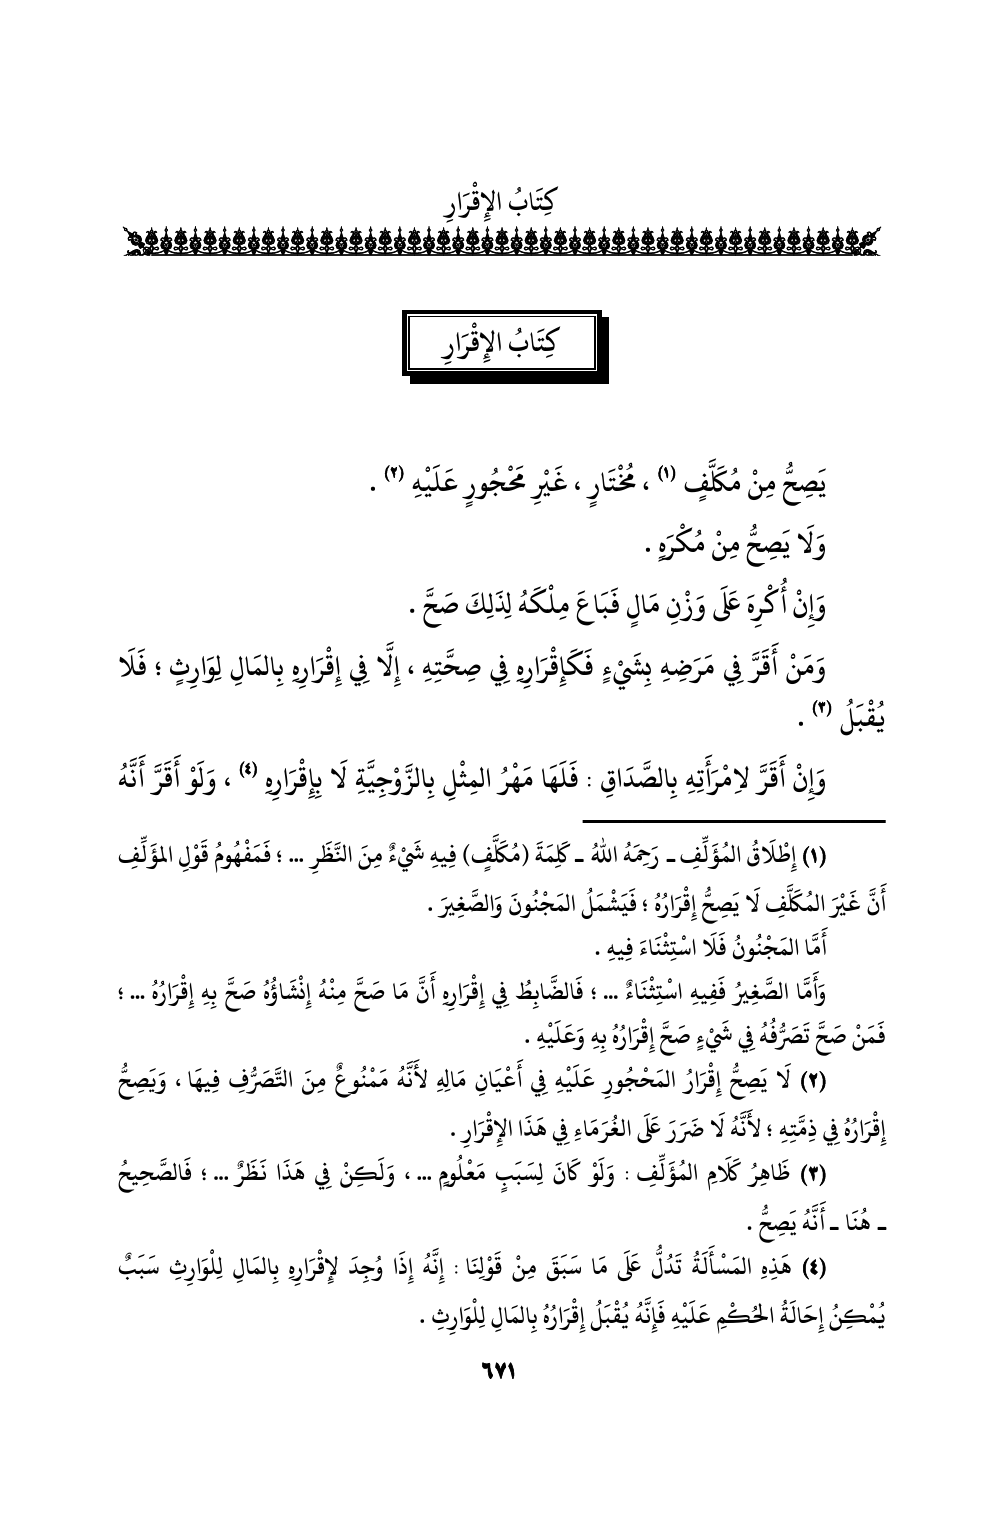 كِتَابُ الإِقْرَارِ
كِتَابُ الإِقْرَارِ
يَصِحُّ مِنْ مُكَلَّفٍ (١) ، مُخْتَارٍ ، غَيْرِ مَحْجُورٍ عَلَيْهِ (٢) .
وَلَا يَصِحُّ مِنْ مُكْرَهٍ .
وَإِنْ أُكْرِهَ عَلَى وَزْنِ مَالٍ فَبَاعَ مِلْكَهُ لِذَلِكَ صَحَّ .
وَمَنْ أَقَرَّ فِي مَرَضِهِ بِشَيْءٍ فَكَإِقْرَارِهِ فِي صِحَّتِهِ ، إِلَّا فِي إِقْرَارِهِ بِالمَالِ لِوَارِثٍ ؛ فَلَا
يُقْبَلُ (٣) .
وَإِنْ أَقَرَّ لِامْرَأَتِهِ بِالصَّدَاقِ : فَلَهَا مَهْرُ المِثْلِ بِالزَّوْجِيَّةِ لَا بِإِقْرَارِهِ (٤) ، وَلَوْ أَقَرَّ أَنَّهُ
(١) إِطْلَاقُ المُؤَلِّفِ ـ رَحِمَهُ اللهُ ـ كَلِمَةَ (مُكَلَّفٍ) فِيهِ شَيْءٌ مِنَ النَّظَرِ ... ؛ فَمَفْهُومُ قَوْلِ المؤَلِّفِ
أَنَّ غَيْرَ المُكَلَّفِ لَا يَصِحُّ إِقْرَارُهُ ؛ فَيَشْمَلُ المَجْنُونَ وَالصَّغِيرَ .
أَمَّا المَجْنُونُ فَلَا اسْتِثْنَاءَ فِيهِ .
وَأَمَّا الصَّغِيرُ فَفِيهِ اسْتِثْنَاءٌ ... ؛ فَالضَّابِطُ فِي إِقْرَارِهِ أَنَّ مَا صَحَّ مِنْهُ إِنْشَاؤُهُ صَحَّ بِهِ إِقْرَارُهُ ... ؛
فَمَنْ صَحَّ تَصَرُّفُهُ فِي شَيْءٍ صَحَّ إِقْرَارُهُ بِهِ وَعَلَيْهِ .
(٢) لَا يَصِحُّ إِقْرَارُ المَحْجُورِ عَلَيْهِ فِي أَعْيَانِ مَالِهِ لأَنَّهُ مَمْنُوعٌ مِنَ التَّصَرُّفِ فِيهَا ، وَيَصِحُّ
إِقْرَارُهُ فِي ذِمَّتِهِ ؛ لأَنَّهُ لَا ضَرَرَ عَلَى الغُرَمَاءِ فِي هَذَا الإِقْرَارِ .
(٣) ظَاهِرُ كَلَامِ المُؤَلِّفِ : وَلَوْ كَانَ لِسَبَبٍ مَعْلُومٍ ... ، وَلَكِنْ فِي هَذَا نَظَرٌ ... ؛ فَالصَّحِيحُ
ـ هُنَا ـ أَنَّهُ يَصِحُّ .
(٤) هَذِهِ المَسْأَلَةُ تَدُلُّ عَلَى مَا سَبَقَ مِنْ قَوْلِنَا : إِنَّهُ إِذَا وُجِدَ لإِقْرَارِهِ بِالمَالِ لِلْوَارِثِ سَبَبٌ
يُمْكِنُ إِحَالَةُ الحُكْمِ عَلَيْهِ فَإِنَّهُ يُقْبَلُ إِقْرَارُهُ بِالمَالِ لِلْوَارِثِ .
٦٧١